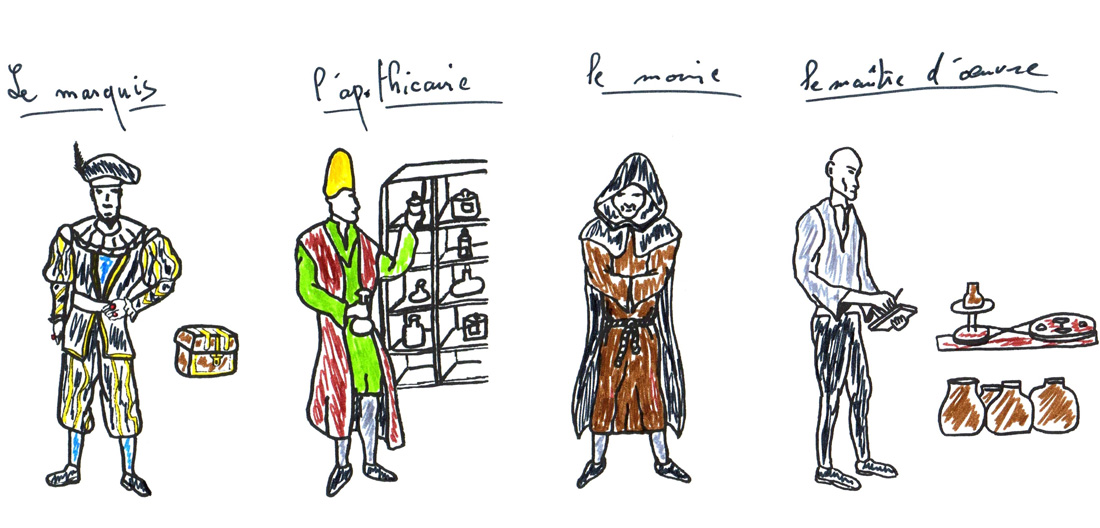 Le marquis
l'apothicaire
le moine
le maître d'œuvre